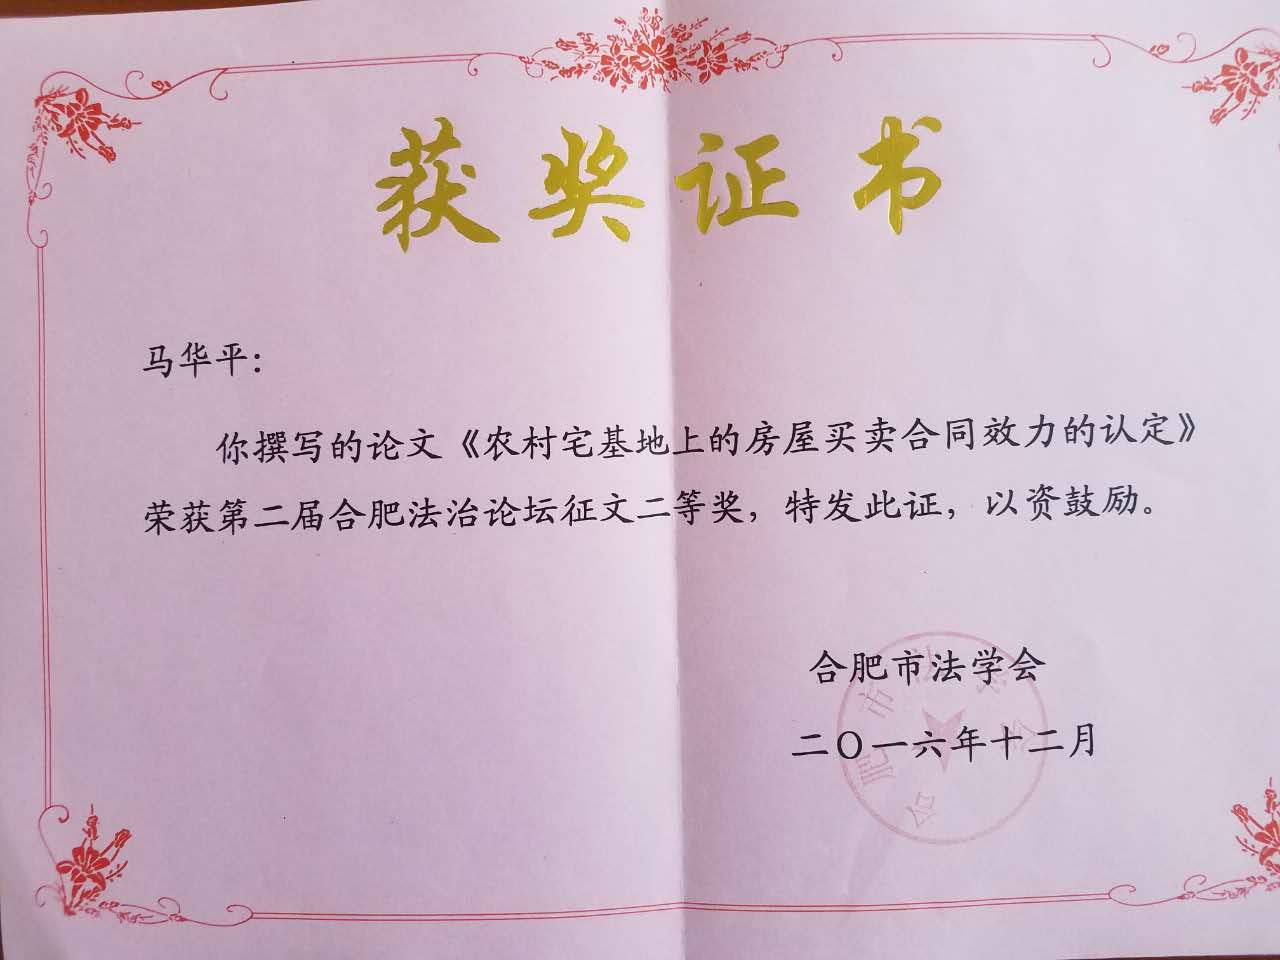 获奖证书
马华平：
你撰写的论文《农村宅基地上的房屋买卖合同效力的认定》
荣获第二届合肥法治论坛征文二等奖，特发此证，以资鼓励。
合肥市法学会
二〇一六年十二月
合肥市法学会